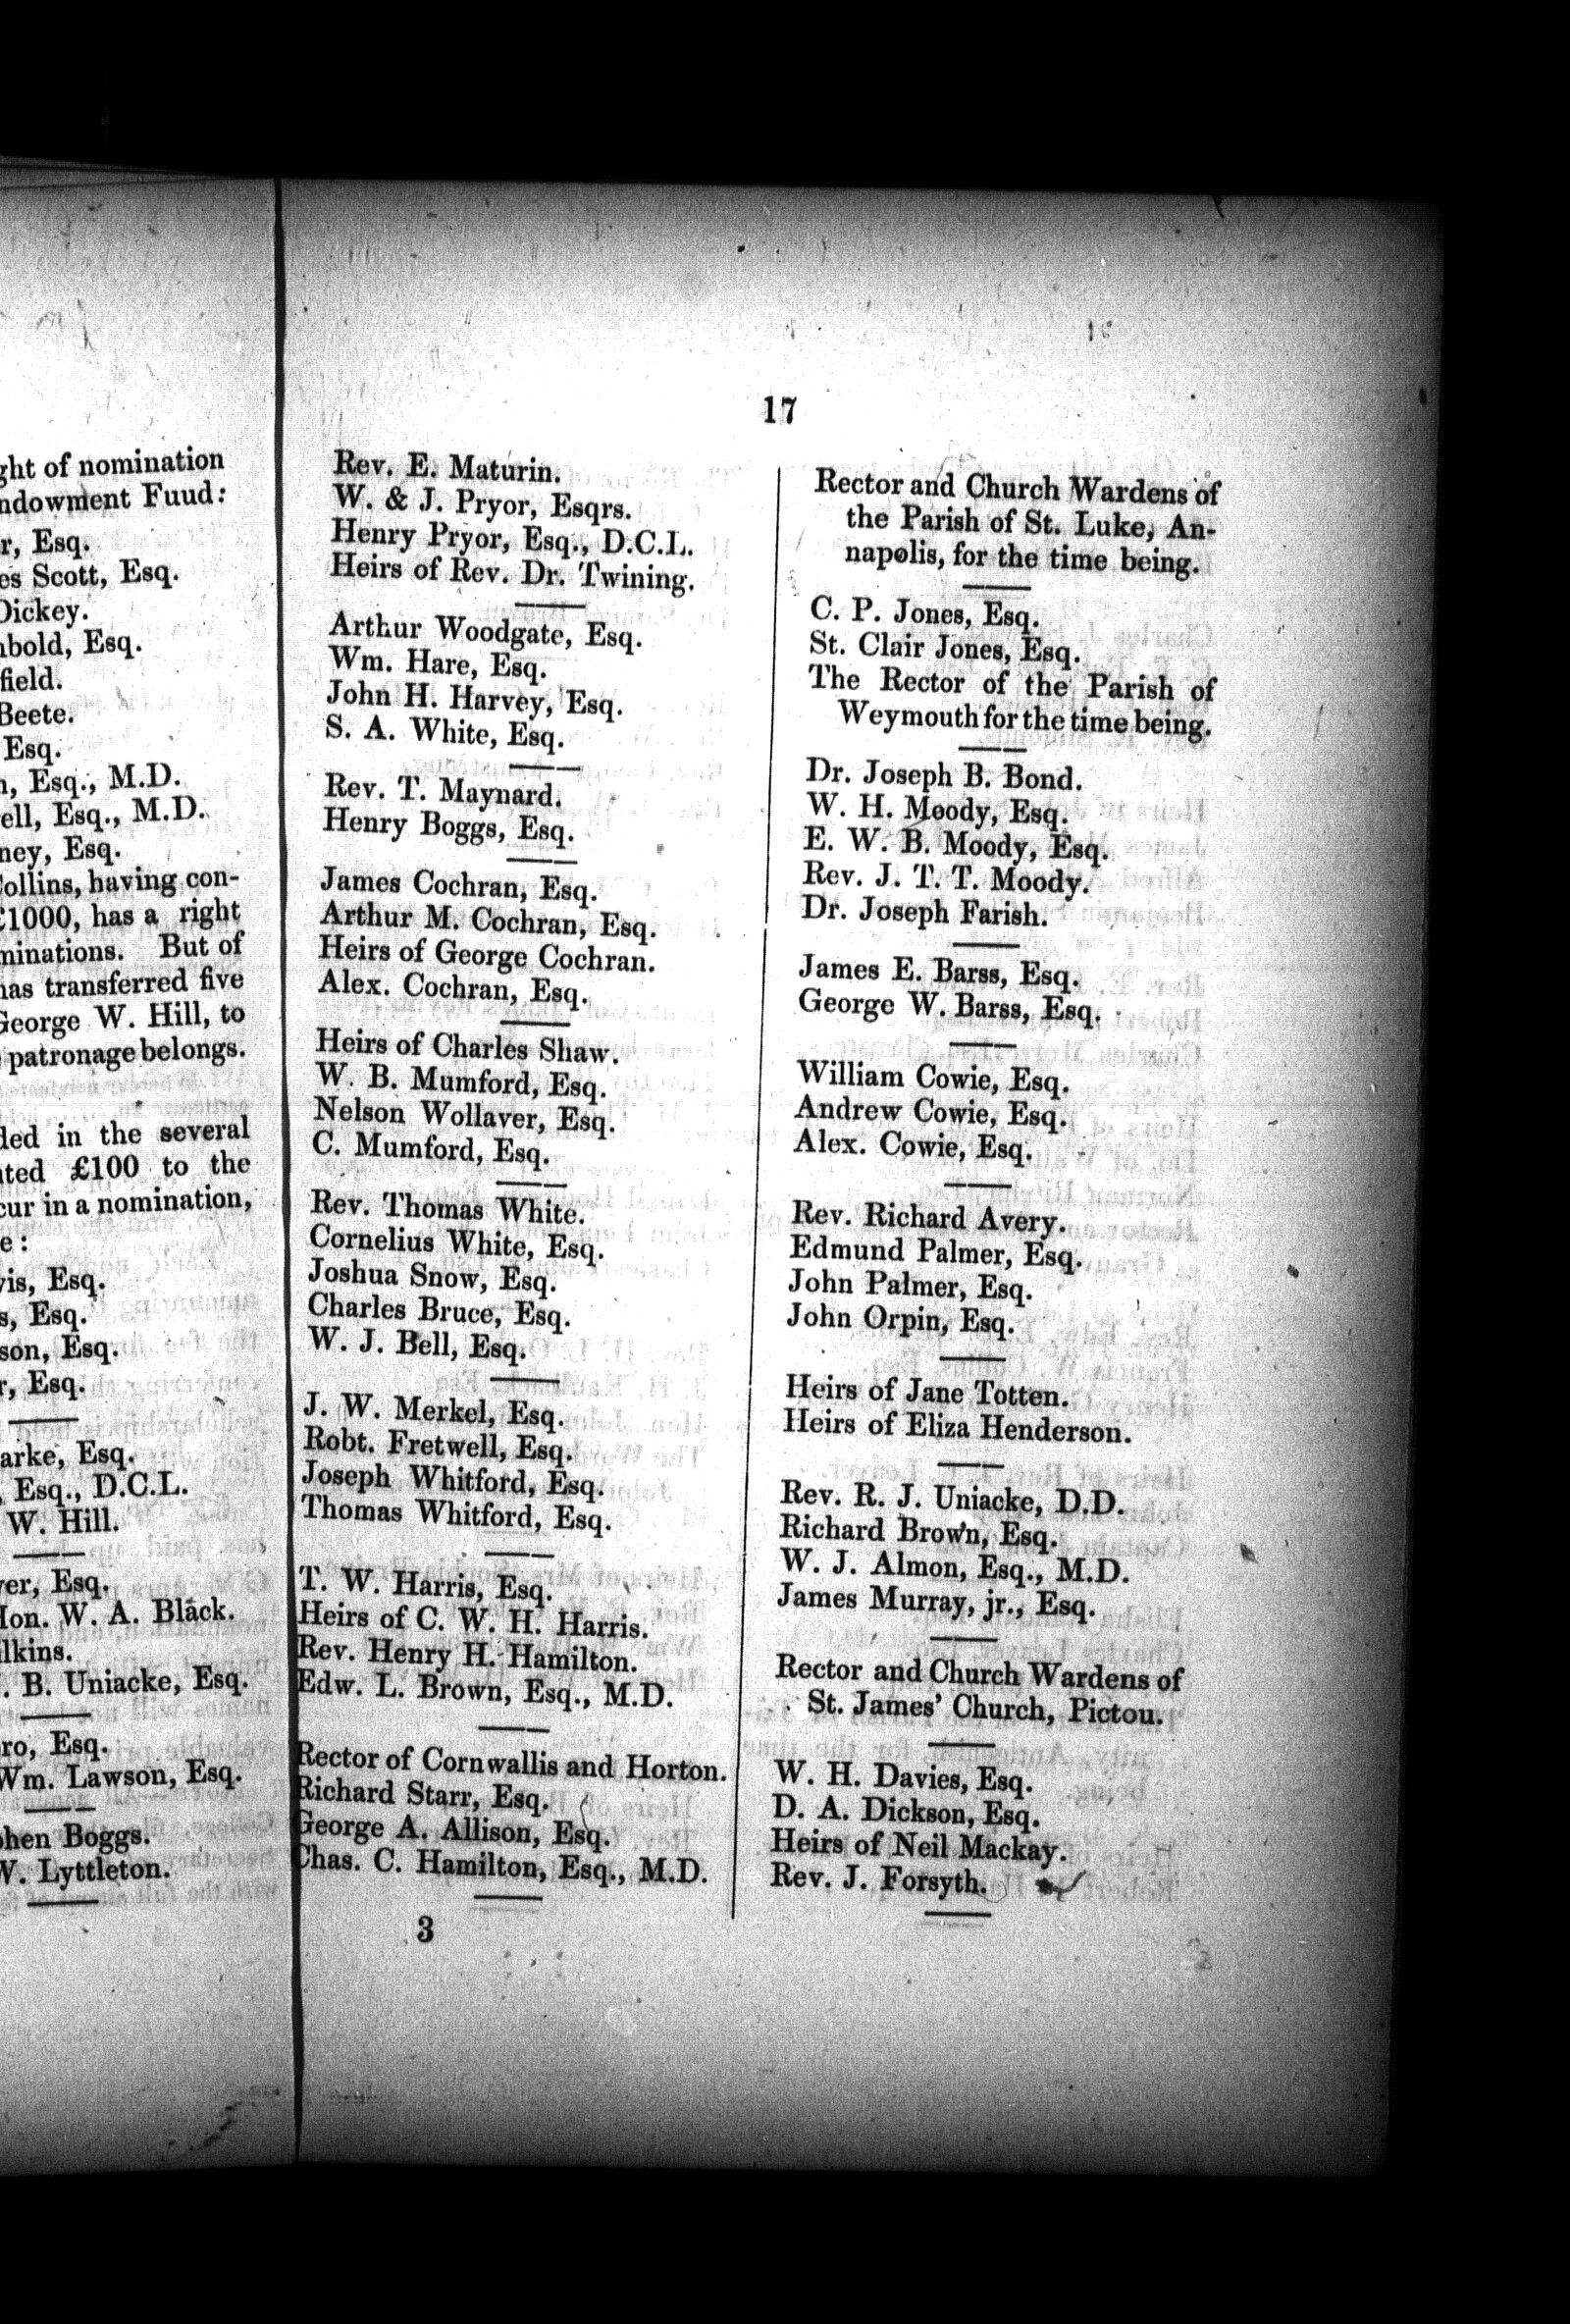 ght of nomination
ndowment Fuud:
r, Esq.
es Scott, Esq.
Dickey.
nbold, Esq.
field.
Beete.
Esq.
n, Esq., M.D.
ell, Esq., M.D.
ney, Esq.
Collins, having con-
£1000, has a right
minations. But of
has transferred five
George W. Hill, to
patronage belongs.
ded in the several
uted £100 to the
cur in a nomination,
e:
vis, Esq.
s, Esq.
son, Esq.
r, Esq.
arke, Esq.
, Esq., D.C.L.
W. Hill.
ver, Esq.
Hon. W. A. Black.
lkins.
. B. Uniacke, Esq.
ro, Esq.
Wm. Lawson, Esq.
phen Boggs.
W. Lyttleton.
17
Rev. E. Maturin.
W. & J. Pryor, Esqrs.
Henry Pryor, Esq., D.C.L.
Heirs of Rev. Dr. Twining.
Arthur Woodgate, Esq.
Wm. Hare, Esq.
John H. Harvey, Esq.
S. A. White, Esq.
Rev. T. Maynard.
Henry Boggs, Esq.
James Cochran, Esq.
Arthur M. Cochran, Esq.
Heirs of George Cochran.
Alex. Cochran, Esq.
Heirs of Charles Shaw.
W. B. Mumford, Esq.
Nelson Wollaver, Esq.
C. Mumford, Esq.
Rev. Thomas White.
Cornelius White, Esq.
Joshua Snow, Esq.
Charles Bruce, Esq.
W. J. Bell, Esq.
J. W. Merkel, Esq.
Robt. Fretwell, Esq.
Joseph Whitford, Esq.
Thomas Whitford, Esq.
T. W. Harris, Esq.
Heirs of C. W. H. Harris.
Rev. Henry H. Hamilton.
Edw. L. Brown, Esq., M.D.
Rector of Cornwallis and Horton.
Richard Starr, Esq.
George A. Allison, Esq.
Chas. C. Hamilton, Esq., M.D.
3
Rector and Church Wardens of
the Parish of St. Luke, An-
napolis, for the time being.
C. P. Jones, Esq.
St. Clair Jones, Esq.
The Rector of the Parish of
Weymouth for the time being.
Dr. Joseph B. Bond.
W. H. Moody, Esq.
E. W. B. Moody, Esq.
Rev. J. T. T. Moody.
Dr. Joseph Farish.
James E. Barss, Esq.
George W. Barss, Esq.
William Cowie, Esq.
Andrew Cowie, Esq.
Alex. Cowie, Esq.
Rev. Richard Avery.
Edmund Palmer, Esq.
John Palmer, Esq.
John Orpin, Esq.
Heirs of Jane Totten.
Heirs of Eliza Henderson.
Rev. R. J. Uniacke, D.D.
Richard Brown, Esq.
W. J. Almon, Esq., M.D.
James Murray, jr., Esq.
Rector and Church Wardens of
St. James' Church, Pictou.
W. H. Davies, Esq.
D. A. Dickson, Esq.
Heirs of Neil Mackay.
Rev. J. Forsyth.